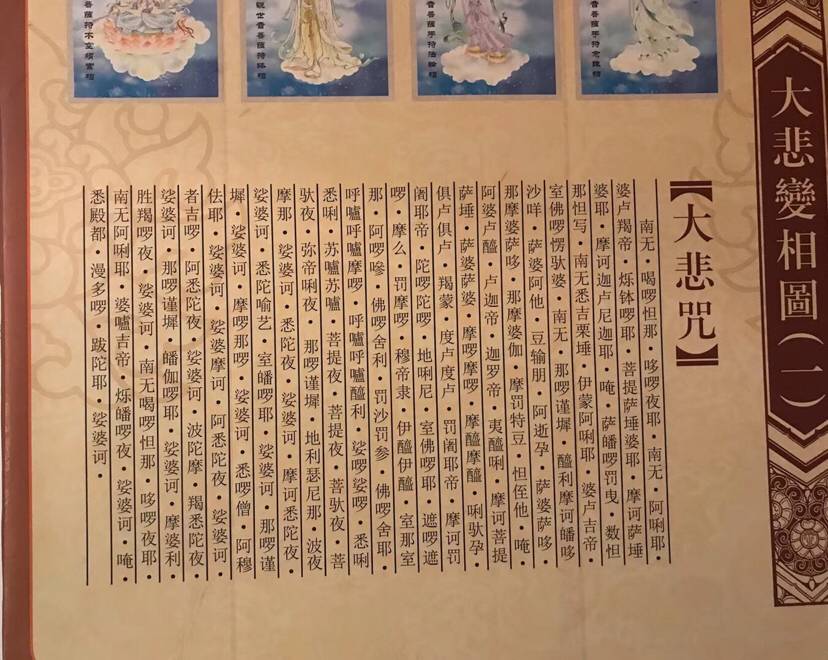 大悲變相圖（一）
音菩薩手持法輪相
菩薩持不空絹索相
【大悲咒】
南无·喝啰怛那·哆啰夜耶·南无·阿唎耶·
婆卢羯帝·烁钵啰耶·菩提萨埵婆耶·摩诃萨埵
婆耶·摩诃迦卢尼迦耶·唵·萨皤啰罚曳·数怛
那怛写·南无悉吉栗埵·伊蒙阿唎耶·婆卢吉帝·
室佛啰愣驮婆·南无·那啰谨墀·醯利摩诃皤哆
沙咩·萨婆阿他·豆输朋·阿逝孕·萨婆萨哆·
那摩婆萨哆·那摩婆伽·摩罚特豆·怛侄他·唵·
阿婆卢醯·卢迦帝·迦罗帝·夷醯唎·摩诃菩提
萨埵·萨婆萨婆·摩啰摩啰·摩醯摩醯·唎驮孕·
俱卢俱卢·羯蒙·度卢度卢·罚阇耶帝·摩诃罚
阇耶帝·陀啰陀啰·地唎尼·室佛啰耶·遮啰遮
啰·摩么·罚摩啰·穆帝隶·伊醯伊醯·室那室
那·阿啰嘇·佛啰舍利·罚沙罚参·佛啰舍耶·
呼嚧呼嚧摩啰·呼嚧呼嚧醯利·娑啰娑啰·悉唎
悉唎·苏嚧苏嚧·菩提夜·菩提夜·菩驮夜·菩
驮夜·弥帝唎夜·那啰谨墀·地利瑟尼那·波夜
摩那·娑婆诃·悉陀夜·娑婆诃·摩诃悉陀夜
娑婆诃·悉陀喻艺·室皤啰耶·娑婆诃·那啰谨
墀·娑婆诃·摩啰那啰·娑婆诃·悉啰僧·阿穆
佉耶·娑婆诃·娑婆摩诃·阿悉陀夜·娑婆诃·
者吉啰·阿悉陀夜·娑婆诃·波陀摩·羯悉陀夜
娑婆诃·那啰谨墀·皤伽啰耶·娑婆诃·摩婆利·
胜羯啰夜·娑婆诃·南无喝啰怛那·哆啰夜耶·
南无阿唎耶·婆嚧吉帝·烁皤啰夜·娑婆诃·唵·
悉殿都·漫多啰·跋陀耶·娑婆诃·